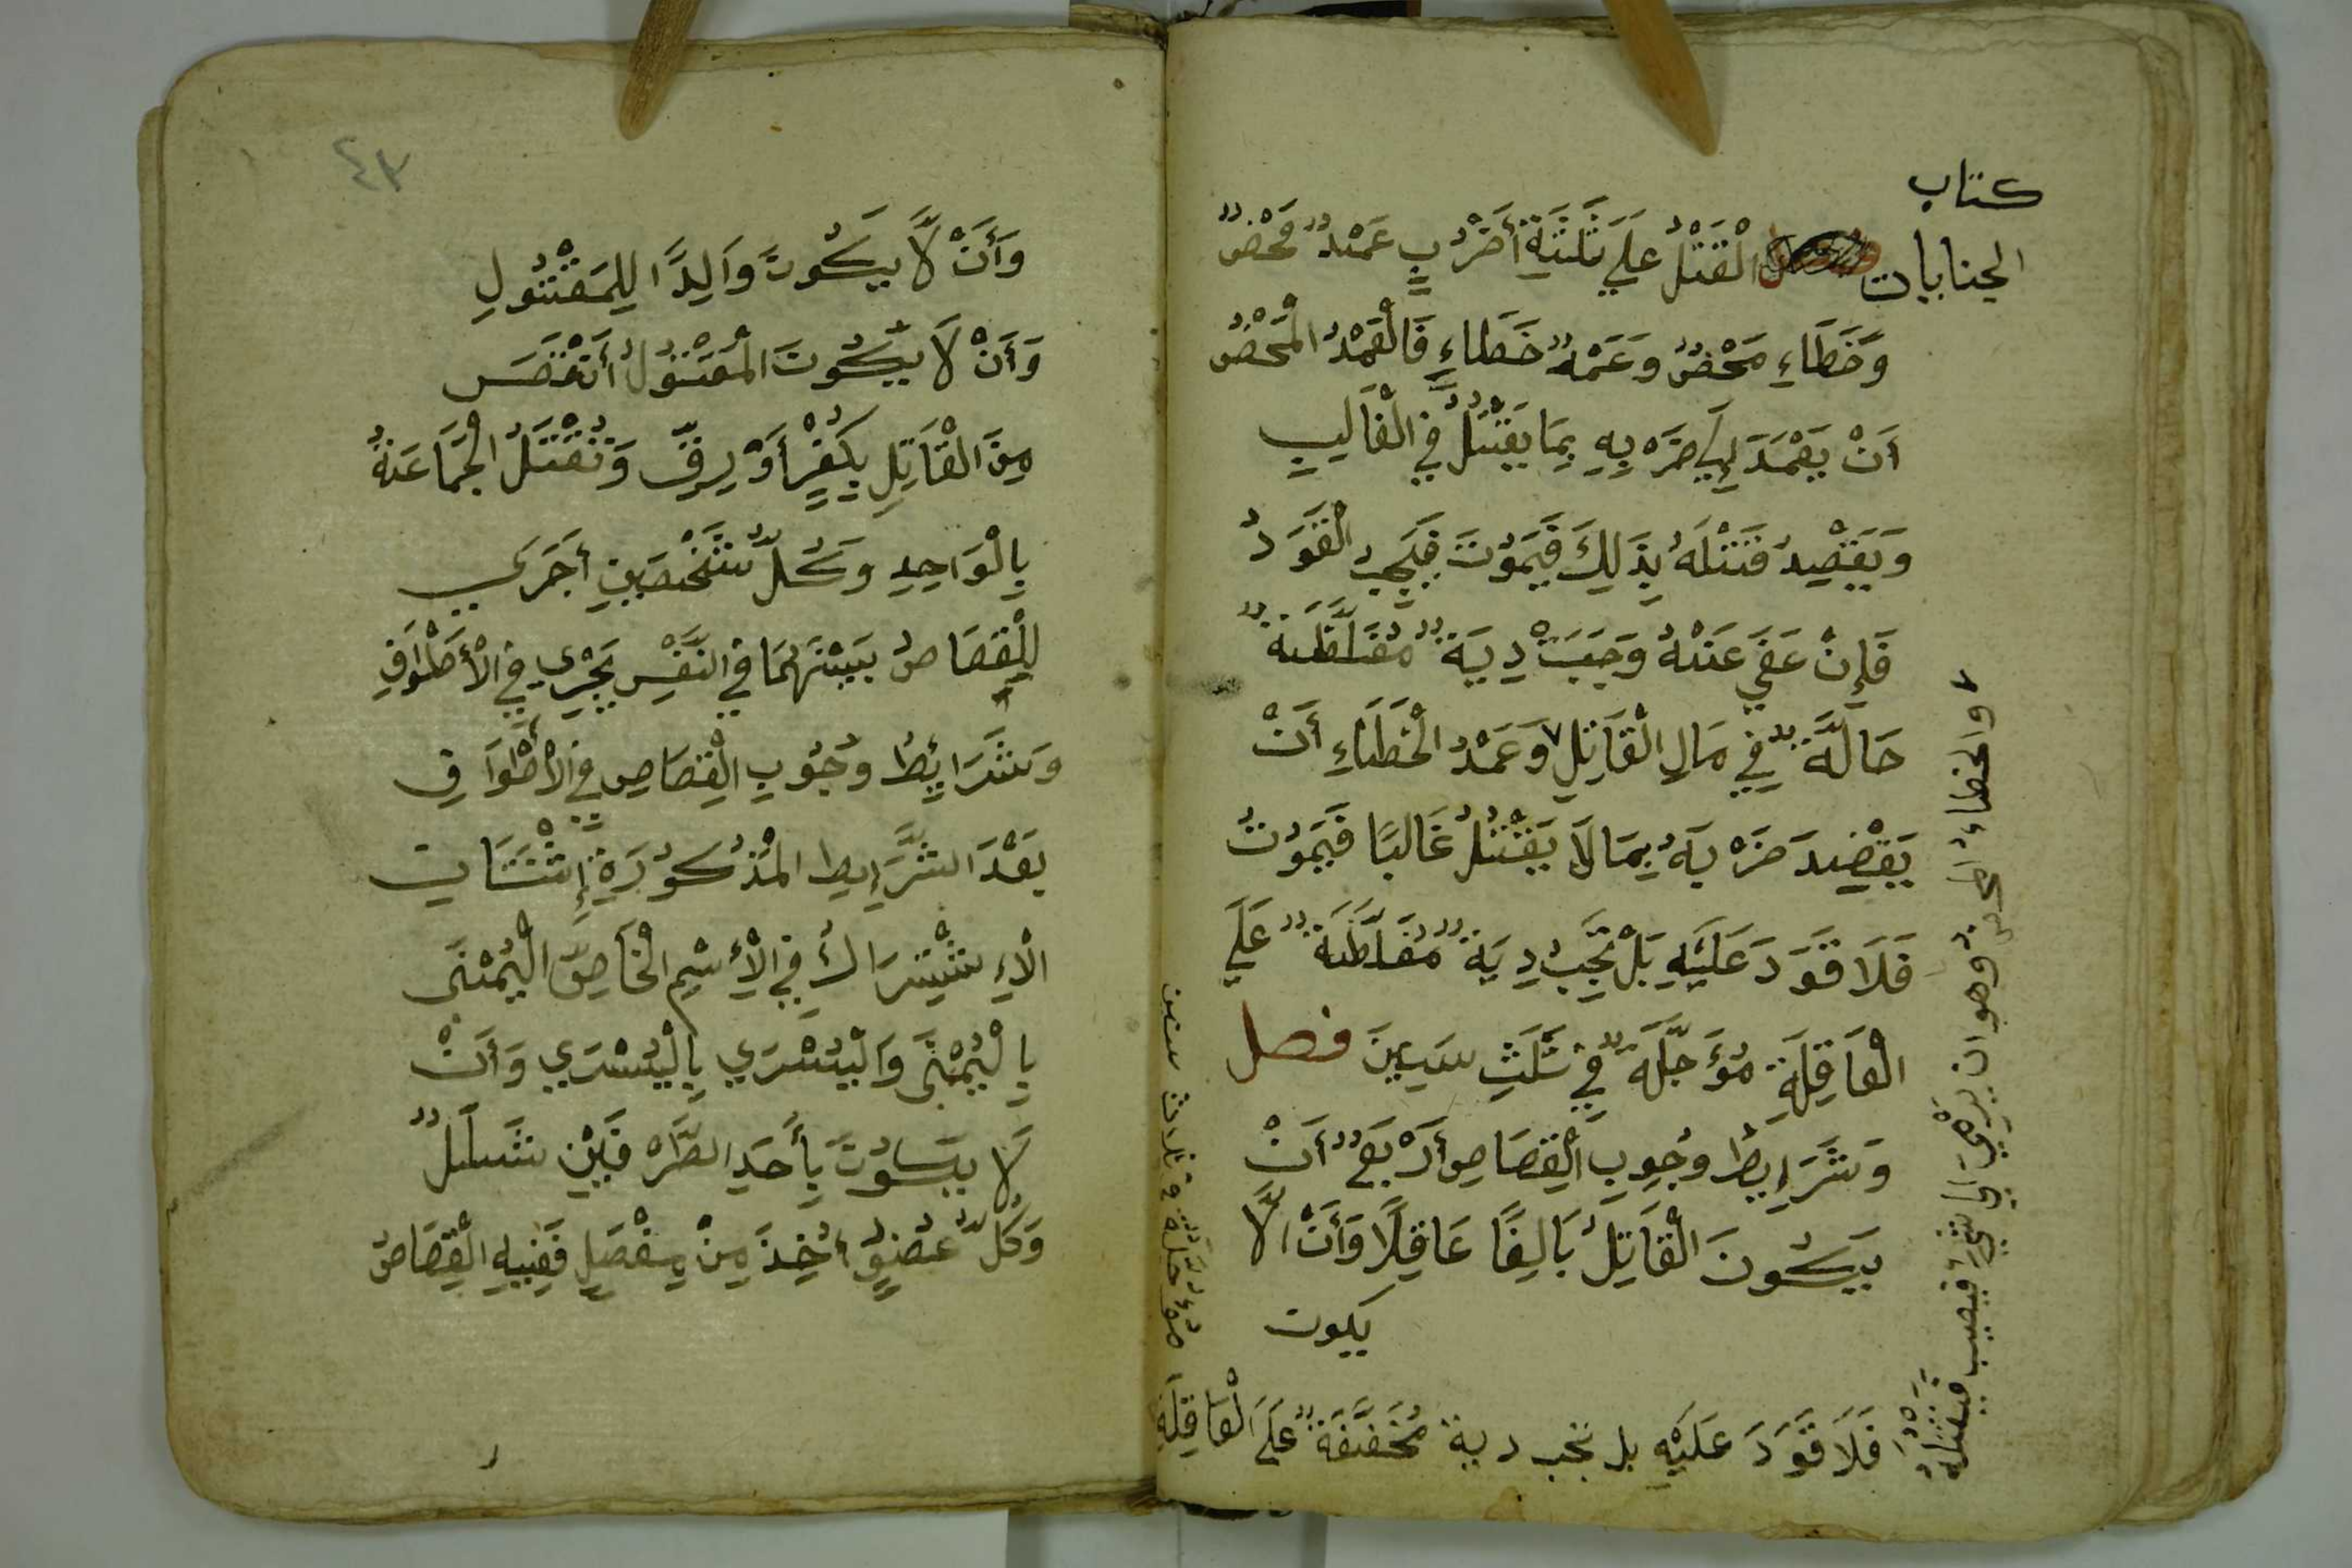 كتاب
الجنايات
الْقَتْلُ عَلَي ثَلَثَةِ أَضْرُبٍ عَمْدٌ مَحْضٌ
وَخَطَاءِ مَحْضٌ وَعَمْدٌ خَطَاءِ فَالْعَمْدُ الْمَحْضُ
أَنْ يَعْمَدَ إِلَي ضَرْبِهِ بِمَا يَقْتُلُ فِي الْغَالِبِ
وَيَقْصِدُ قَتْلَهُ بِذَلِكَ فَيَمُوْتَ فَيَجِبُ الْقَوَدُ
فَإِنْ عَفَي عَنْهُ وَجَبَتْ دِيَةٌ مُغَلَّظَةٌ
حَالَّةٌ فِي مَالِ الْقَاتِلِ ٧ وَعَمْدُ الْخَطَاءِ أَنْ
يَقْصِدَ ضَرْبَهُ بِمَا لَا يَقْتُلُ غَالبًا فَيَمُوْتُ
فَلَا قَوَدَ عَلَيْهِ بَلْ تَجِبُ دِيَةٌ مُغَلَّظَةٌ عَلَي
الْعَاقِلَةِ مُؤَجَّلَةٌ فِي ثَلَثِ سِنِينَ فصل
وَشَرَإِيطُ وُجُوبِ الْقِصَاصِ أَرْبَعٌ أَنْ
يَكُونَ الْقَاتِلُ بَالِغًا عَاقِلًا وَأَنْ الَّا
يكون
٧ والخطاءُ المحضُ وهو ان يَرْمِيَ الي شيءٍ فيصيب فيقتلهُ
فَلَا قَوَدَ عَلَيْهِ بل تجب دية مُخَفَّفَةٌ عَلَي الْعَاقِلَةِ
مؤجلة في ثلاث سنين
٤٣
وَأَنْ لَّا يَكُوْنَ وَالِدًا لِلِمَقْتُوْلِ
وَأَنْ لَا يَكُوْنَ الْمَقْتُوْلُ أَنْقَصَ
مِنَ الْقَاتِلِ بِكُفْرٍ أَوْ بِرِقٍّ وَتُقْتَلُ الْجَمَاعَةُ
بِالْوَاحِدِ وَكُلُّ شَخْصَيْنِ أَجَرَي
الْقِصَاصُ بَيْنَهُمَا فِي النَّفْسِ يَجْرِي فِي الْأَطْرَافِ
وَشَرَايِطُ وُجُوْبِ الْقِصَاصِ فِي الْأَطْرَافِ
بَعْدَ الشَّرَإيطِ الْمَذْكُوْرَةِ إِثْنَتَانِ
الْإِشْتِرَاكُ فِي الْإِسْمِ الْخَاصِّ الْيُمْنَي
بِالْيُمْنَي وَالْيُسْرَي بِالْيُسْرَي وَأَنْ
لَا يَكُوْنَ بِأَحَدِ الطَّرَفَيْنِ شَلَلٌ
وَكُلُّ عُضْوٍ أُخِذَ مِنْ مِفْصَلٍ فَفِيهِ الْقِصَاصُ